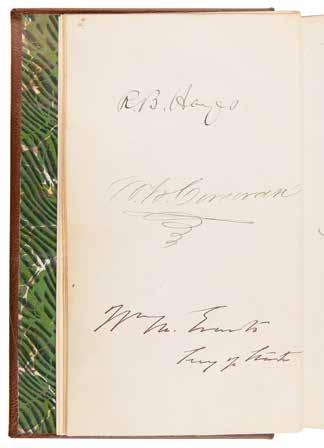 R. B. Hayes
W. W. Corcoran
Wm M. Evarts
Secy of State